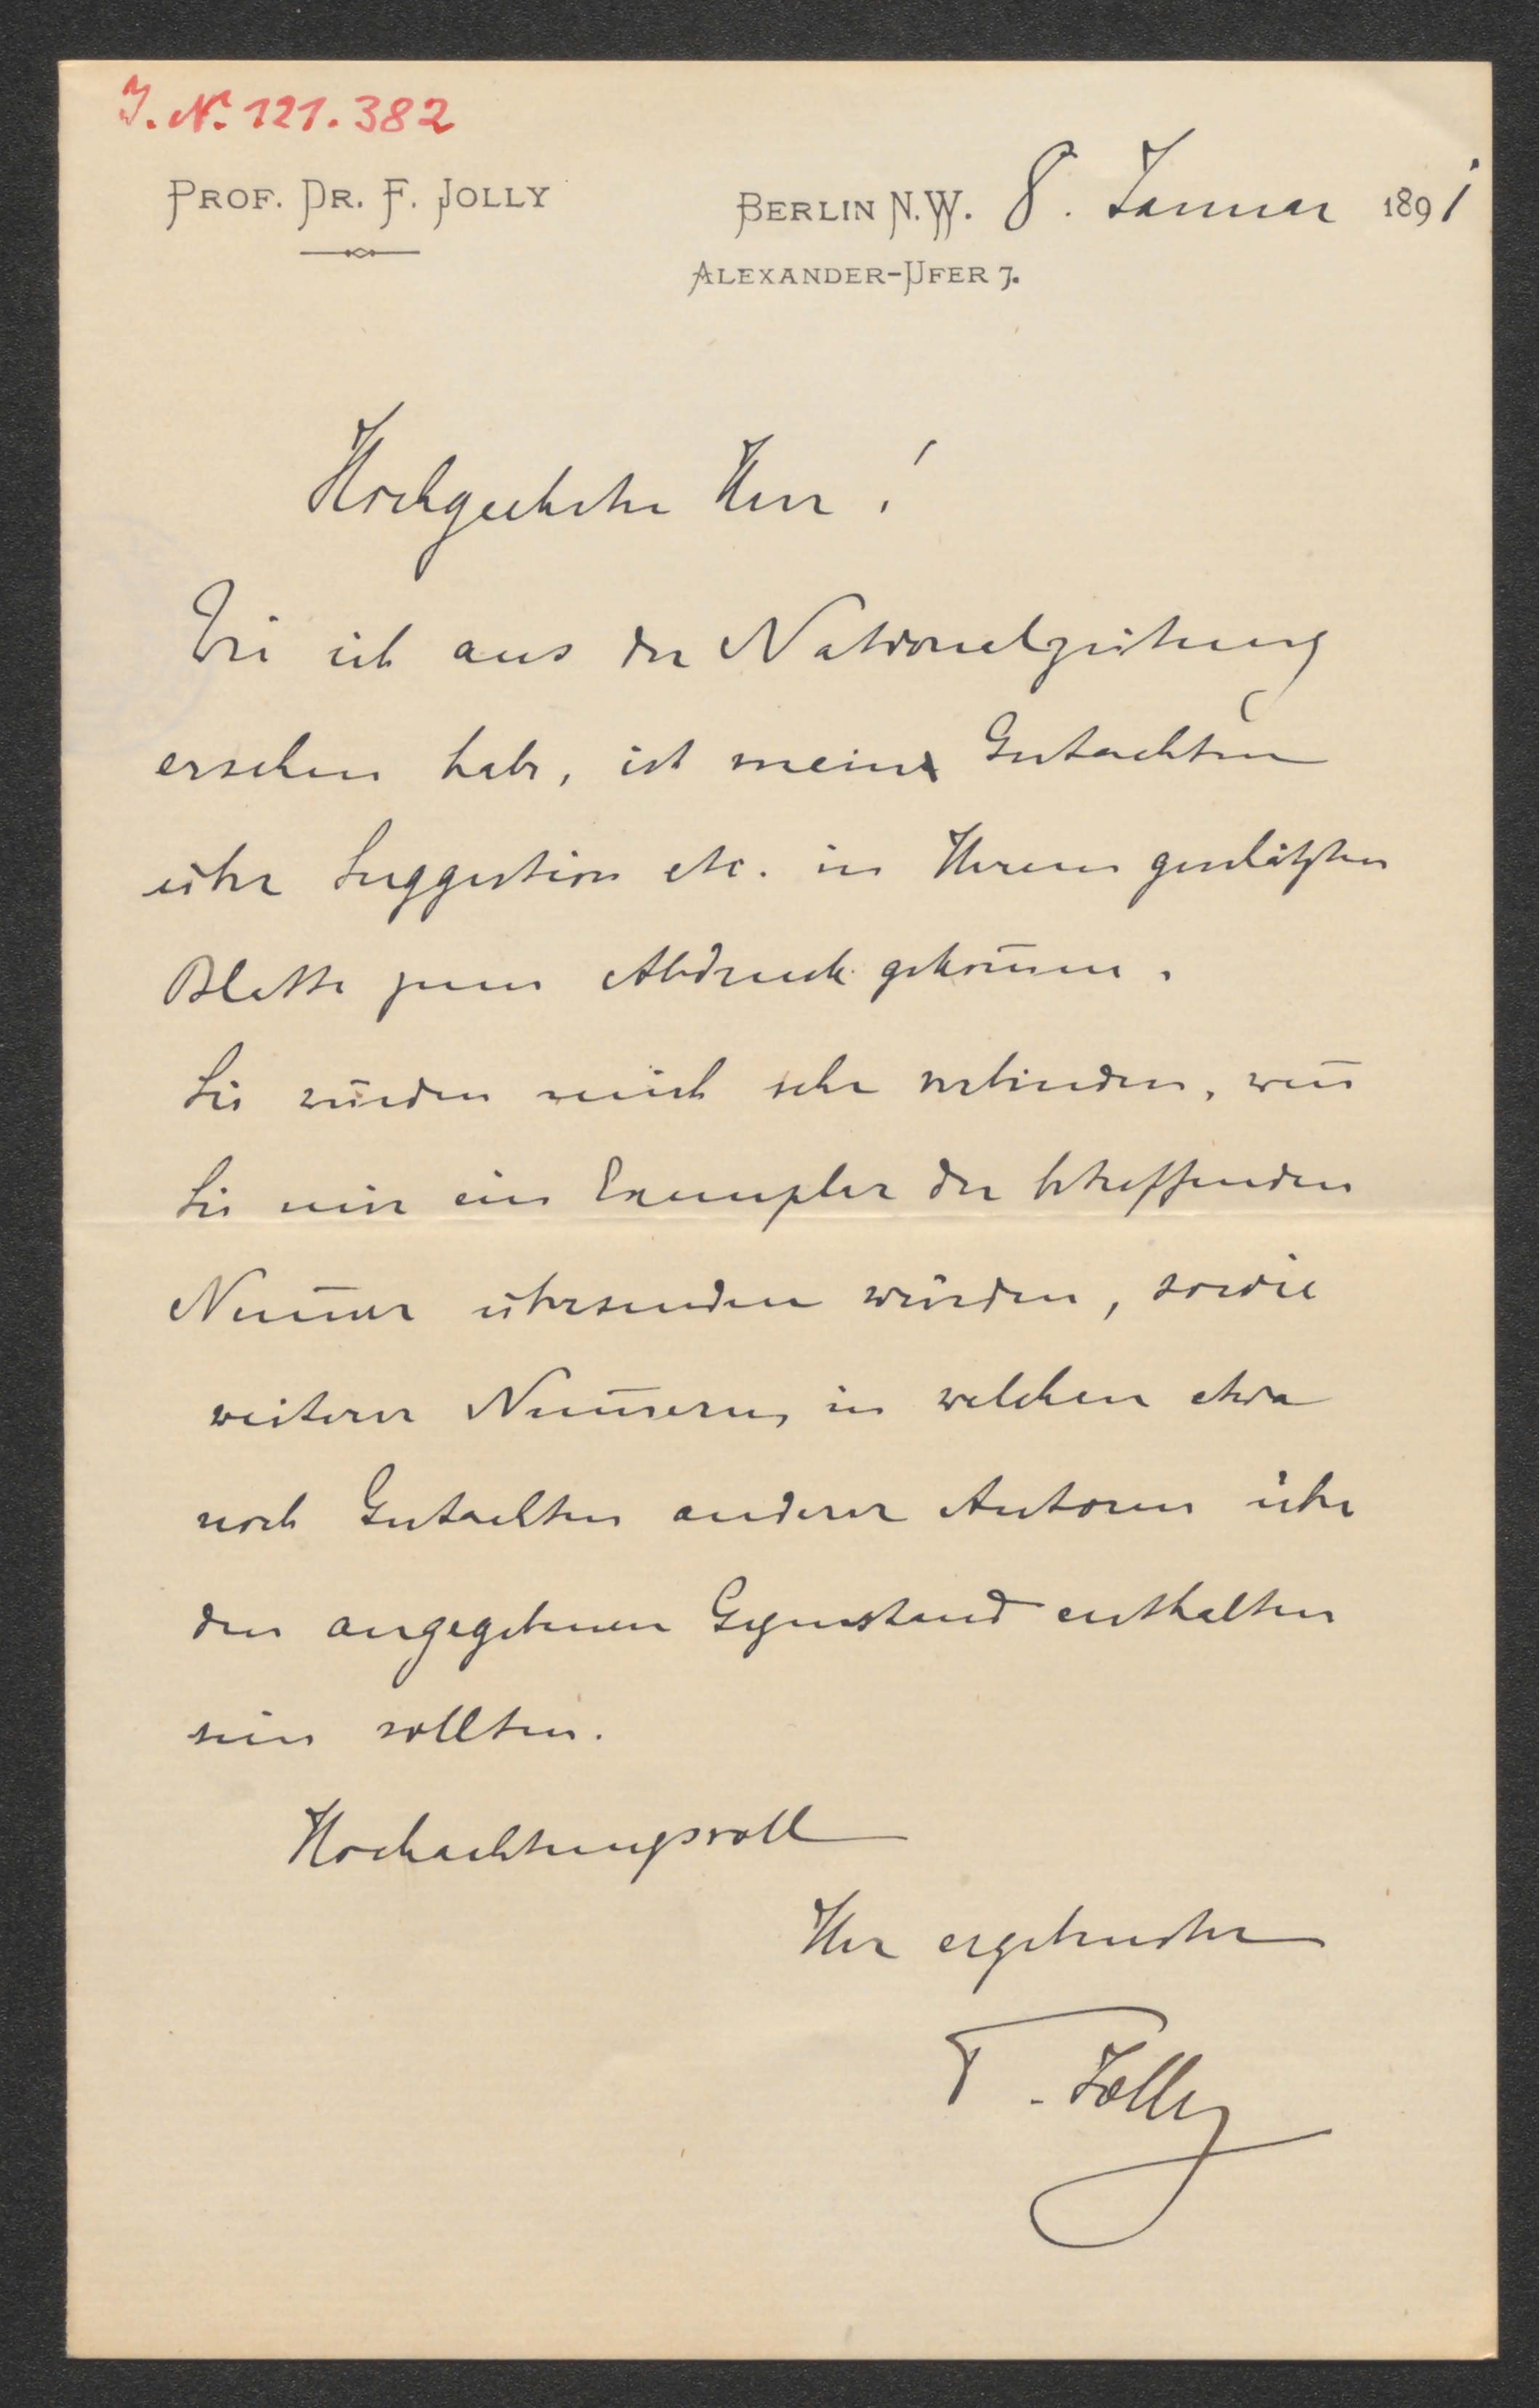 J. N. 121.382
PROF. DR. F. JOLLY
BERLIN N.W. 8. Januar 1891
ALEXANDER-UFER 7.
Hochgeehrter Herr!
Wie ich aus der Nationalzeitung
ersehen habe, ist mein Gutachten
über Suggestion etc. in Ihrem geschätzten
Blatte zum Abdruck gekom̅en.
Sie würden mich sehr verbinden, wen̅
Sie mir ein Exemplar der betreffenden
Num̅er übersenden würden, sowie
weiterer Num̅ern, in welchen etwa
noch Gutachten anderer Autoren über
den angegebenen Gegenstand enthalten
sein sollten.
Hochachtungsvoll
Ihr ergebenster
F. Jolly